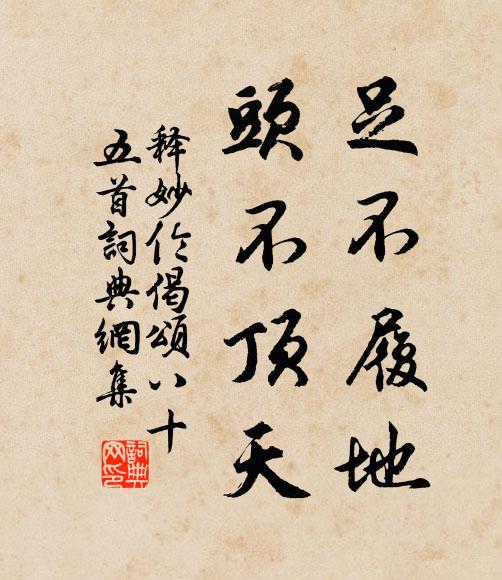 足不履地
頭不頂天
释妙伦偈頌八十
五首詞典網集
詞典网印